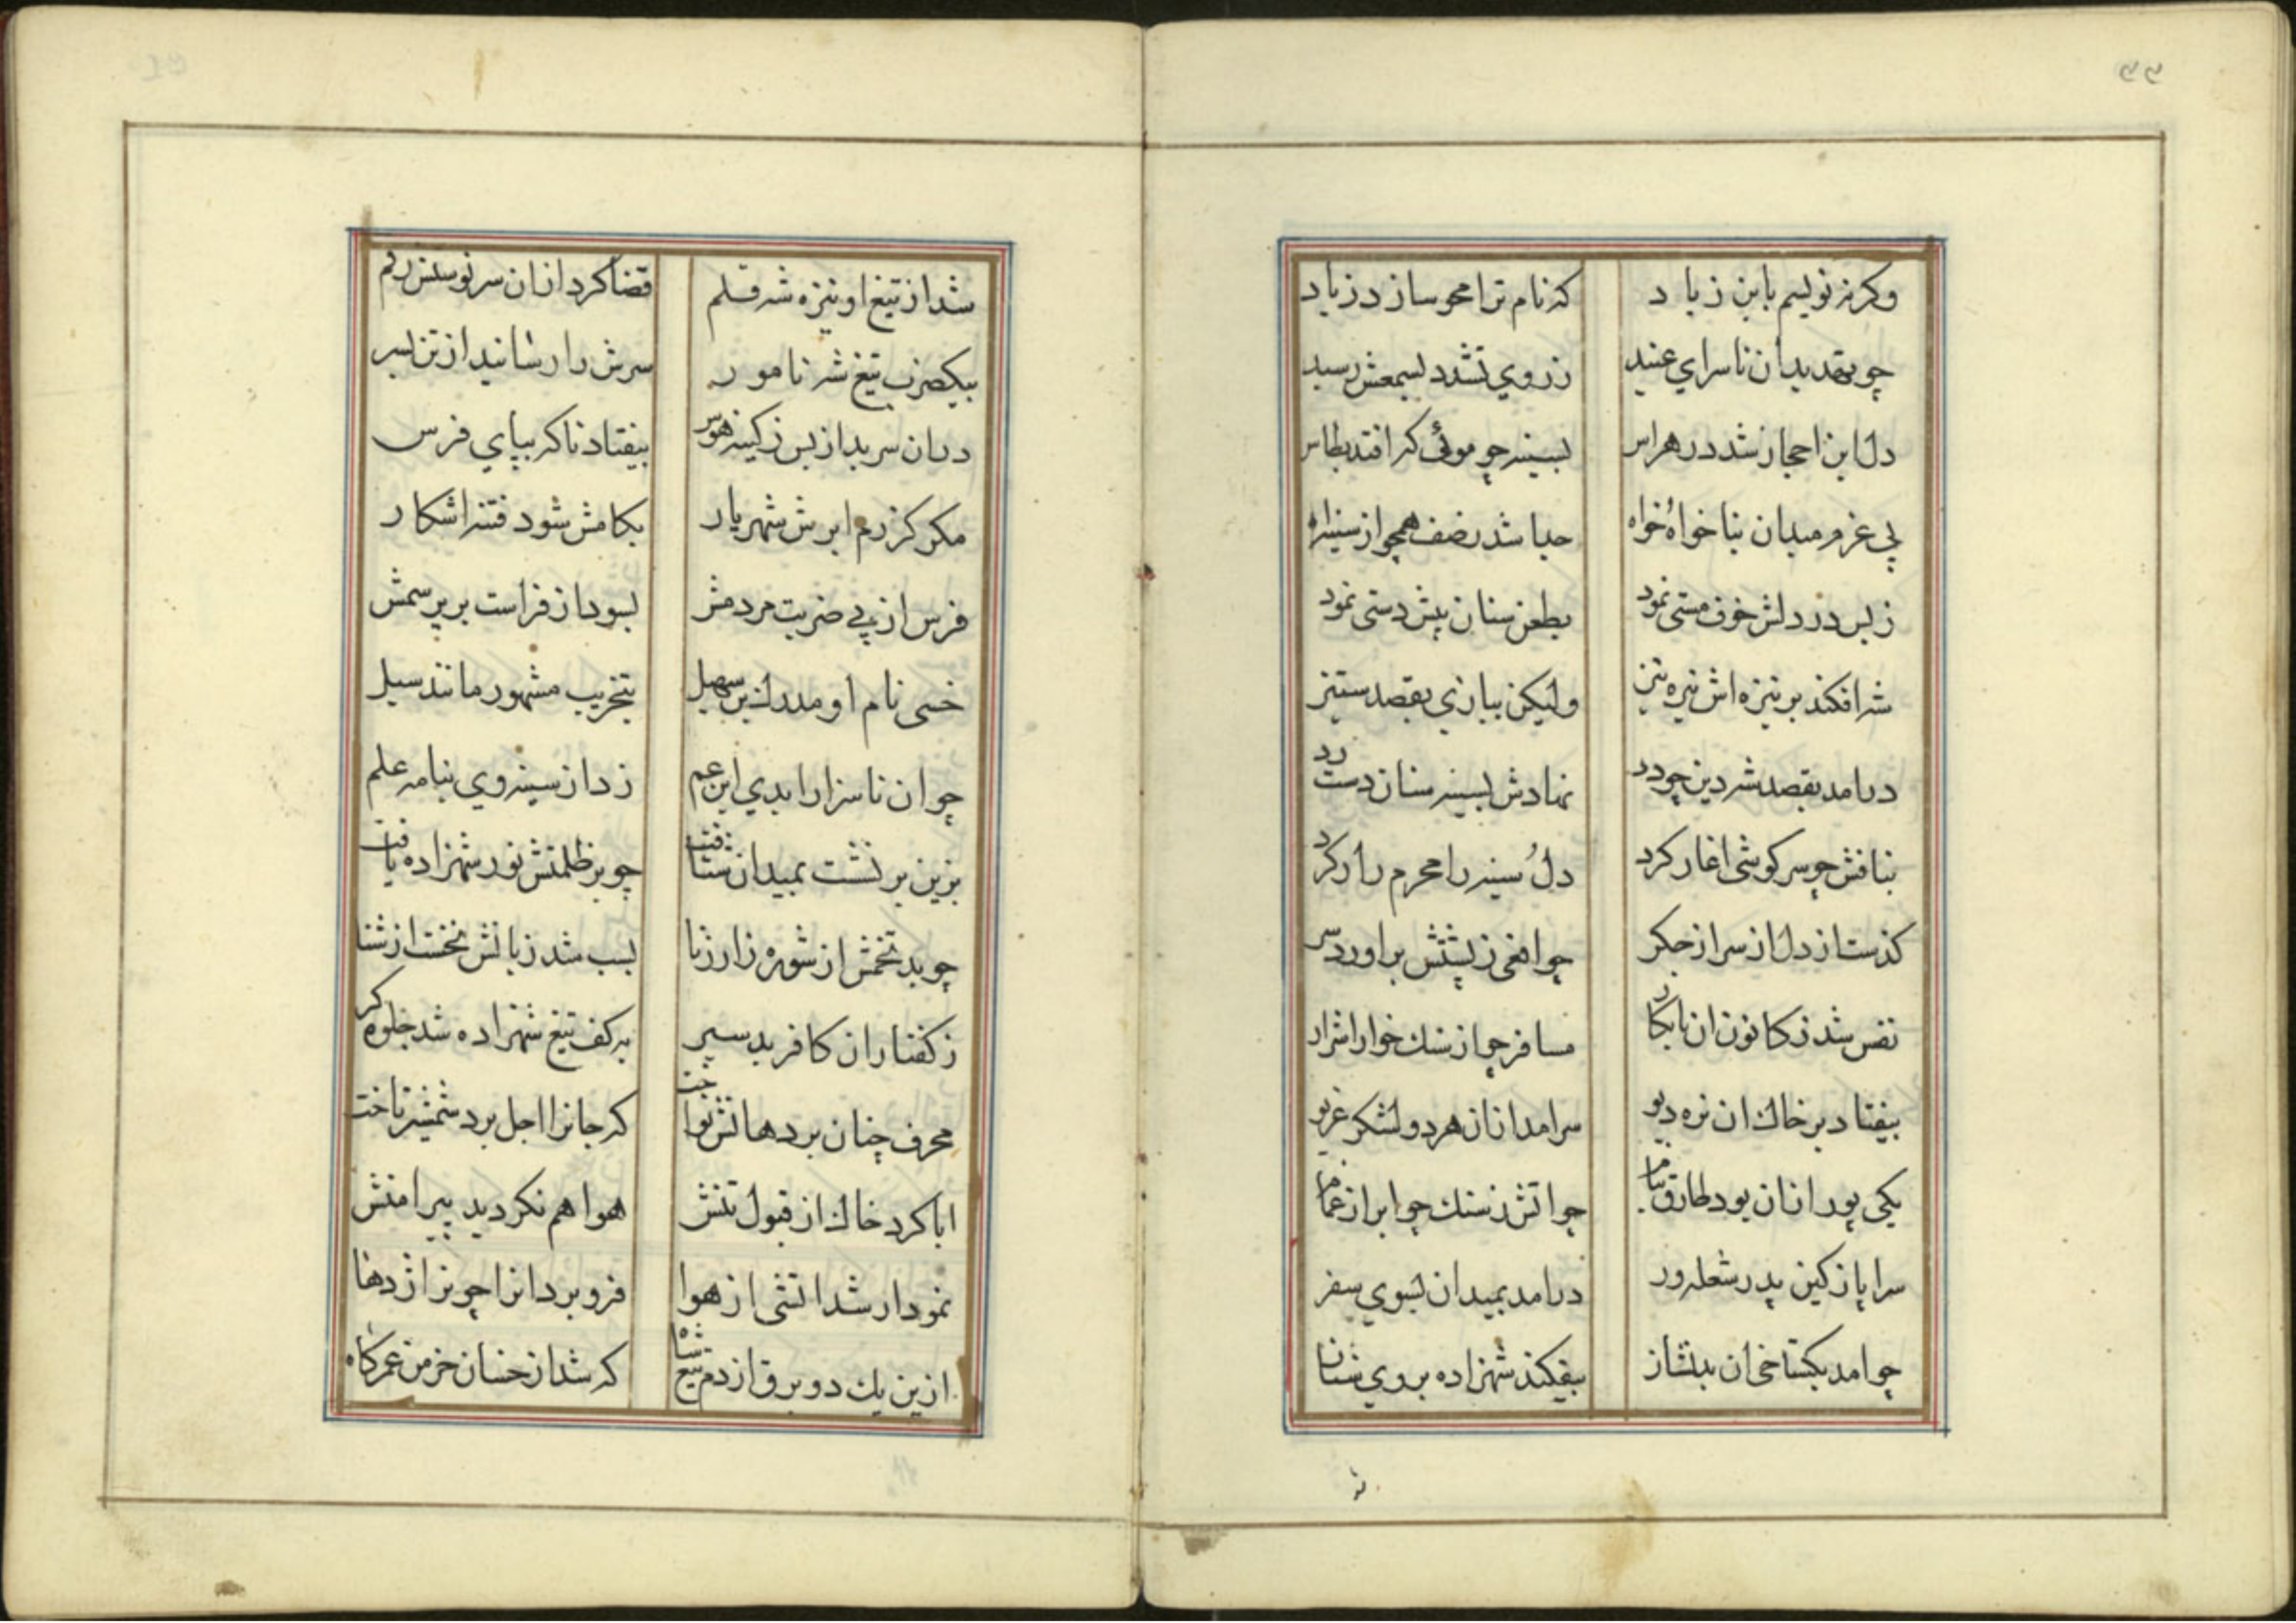 ۳۲
وکرنه نویسم باین زیاد که نام ترا محو سازد زیاد
چو تهدید آن ناسرای عنید ز روی تشدد بسمعش رسید
دل این احجاز شد در هراس بسینه چو موئی که افتد بطاس
پی عزم میدان بناخواه خواه جدا شد ز صف همچو از سینه اه
ز بس در دلش خوف مستی نمود بطعن سنان پیش دستی نمود
شه افکند بر نیزه اش نیزه تیز ولیکن ببازی بقصد ستیز
درامد بقصد شه دین چو دد نهادش بسینه سنان دست رد
بنافش چو سر کوشی اغاز کرد دل سینه را محرم راز کرد
کذشت از دل از سر از جکر چو افعی ز پشتش براورد سر
نفس شد ز کانون ان نابکار مسافر چو از سنک خوارا شرار
بیفتاد بر خاک ان نره دیو برامد ازان هر دو لشکر غریو
یکی پور ازان بود طارق بنام چو اتش ز سنک چو ابر از غمام
سراپا ز کین پدر شعله ور درامد بمیدان بسوی سفر
چو امد بکستاخی ان بدنشان بیفکند شهزاده بروی سنان
شد از تیغ او نیزه شه قلم قضا کرد ازان سرنوستش رقم
بیکضرب تیغ شه نامور سرش را رسانید از تن بسر
دران سر بد از بس ز کینه هوس بیفتاد ناکه بپای فرس
مکر کز رم ابرش شهریار بکامش شود فتنه اشکار
فرس از پی ضربت مردمش بسود از فراست برو بر سمش
خسی نام او مدرک بن سهیل بتخریب مشهور مانند سیل
چو ان ناسزا را بدی ابن عم زد از سینه وی بنامه علم
بزین بر نشست بمیدان شتافت چو بر ظلمتش نور شهزاده یافت
چو بد تخمش از شوره زار زنا بسب شد زبانش نخست از ثنا
ز کفتار ان کافر بد سیر بر کف تیغ شهزاده شد جلوه کر
محرف چنان بر دهانش نواخت که جانرا اجل برد شمشیر تاخت
ابا کرد خاک از قبول تنش هوا هم نکردید پیرامنش
نمودار شد اتشی از هوا فرو برد انرا چو نر اژدها
ازین یک دو برق از دم تیغ شاه که شد از خسان خرمن عمر کاه